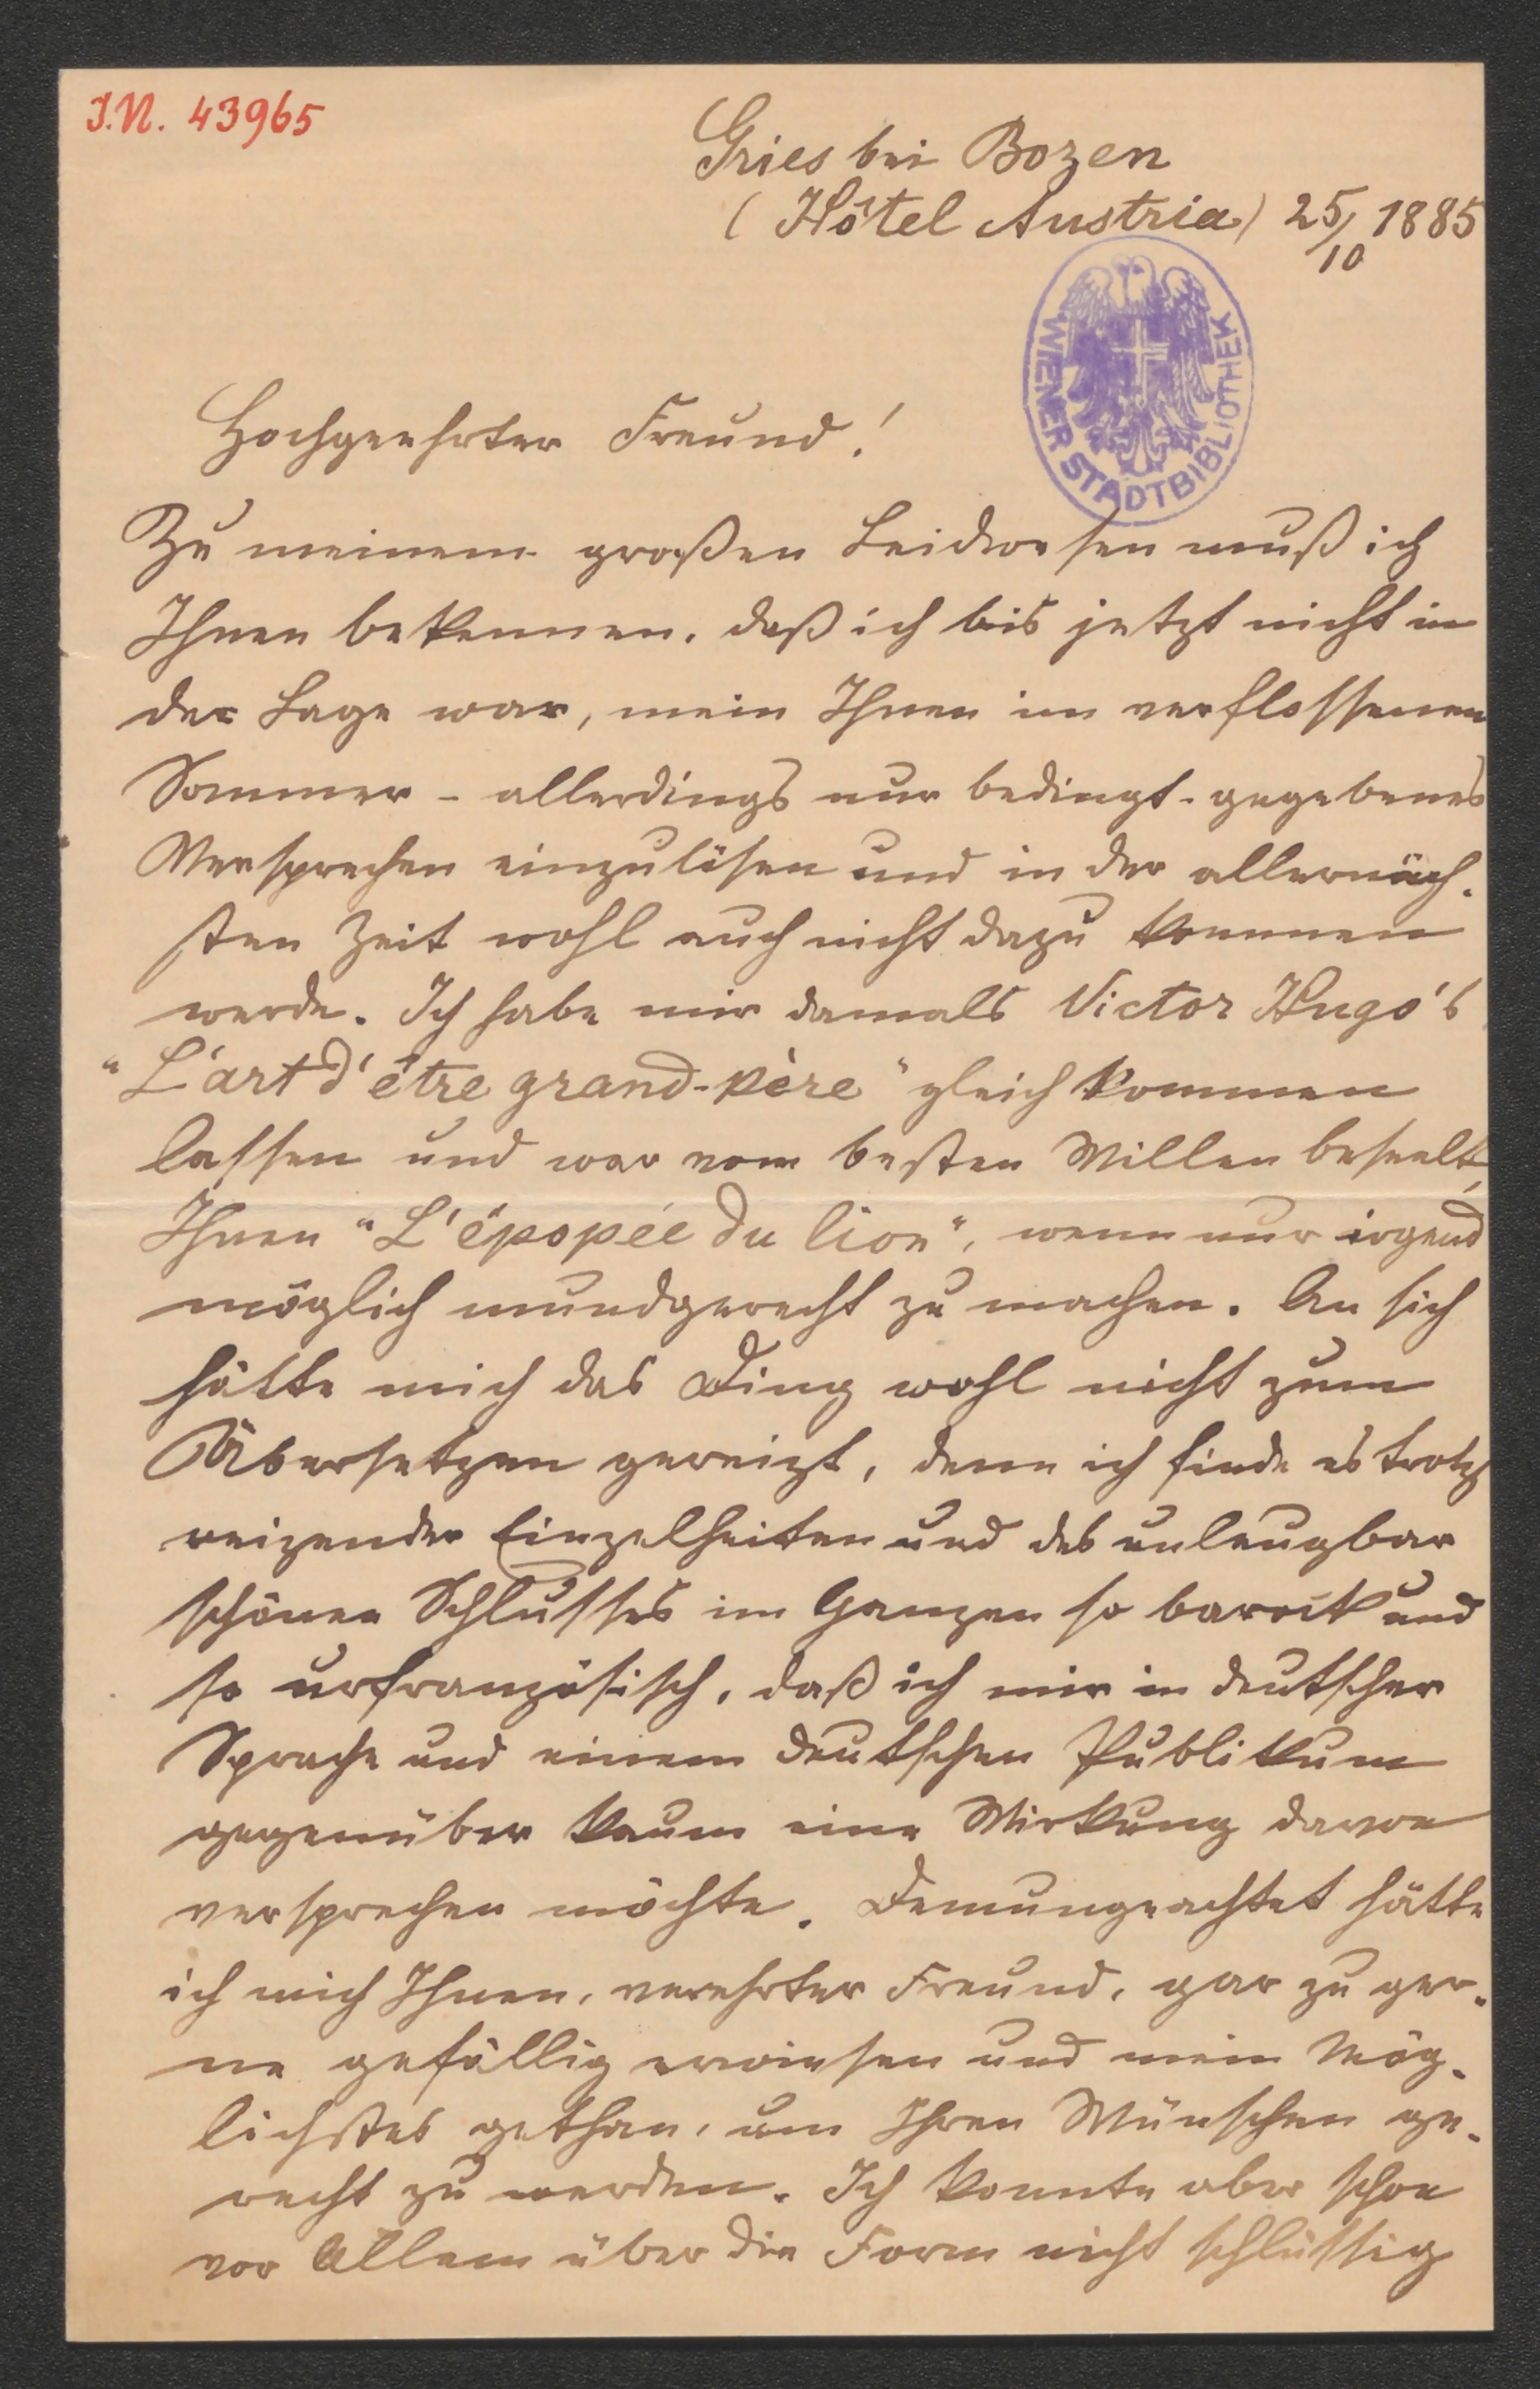 J.N. 43965
Gries bei Bozen
(Hôtel Austria) 25/10 1885
WIENER STADTBIBLIOTHEK
Hochgeehrter Freund!
Zu meinem großen Leidwesen muß ich
Ihnen bekennen, daß ich bis jetzt nicht in
der Lage war, mein Ihnen im verflossenen
Sommer - allerdings nur bedingt - gegebenes
Versprechen einzulösen und in der allernäch-
sten Zeit wohl auch nicht dazu kommen
werde. Ich habe mir damals Victor Hugo's
"L'art d'être grand-père" gleich kommen
lassen und war vom besten Willen beseelt,
Ihnen "L'épopée du lion", wenn nur irgend
möglich mundgerecht zu machen. An sich
hätte mich das Ding wohl nicht zum
Übersetzen gereizt, denn ich finde es trotz
reizender Einzelheiten und des unleugbar
schönen Schlusses im Ganzen so barock und
so urfranzösisch, daß ich mir in deutscher
Sprache und einem deutschen Publikum
gegenüber kaum eine Wirkung davon
versprechen möchte. Demungeachtet hätte
ich mich Ihnen, verehrter Freund, gar zu ger-
ne gefällig erwiesen und mein Mög-
lichstes gethan, um Ihren Wünschen ge-
recht zu werden. Ich konnte aber schon
vor Allem über die Form nicht schlüssig